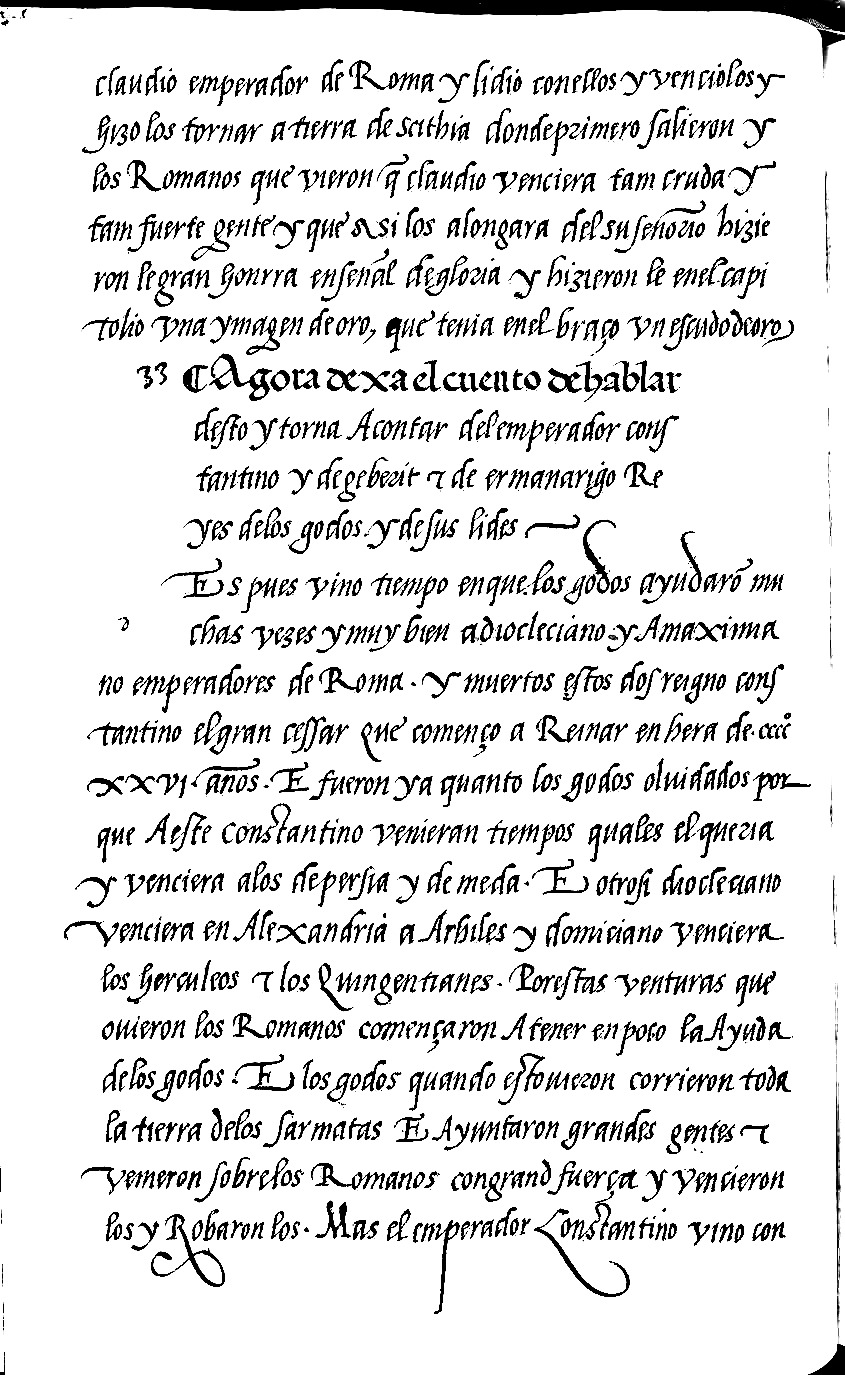 claudio emperador de Roma y lidio conellos y venciolos y
hizo los tornar a tierra de scithia donde primero salieron y
los Romanos que vieron q̃ claudio venciera tam cruda y
tam fuerte gente y que asi los alongara del su señorio hizie
ron le gran honrra en señal de gloria y hizieron le enel capi
tolio vna ymagen de oro, que tenia enel braço vn escudo de oro
33 ¶ Agora dexa el cuento de hablar
desto y torna Acontar del emperador cons
tantino y de geberit ⁊ de ermanarigo Re
yes delos godos. y de sus lides
Es pues vino tiempo en que los godos ayudarõ mu
chas vezes y muy bien a diocleciano y Amaximia
no emperadores de Roma. y muertos estos dos reigno cons
tantino el gran cessar que començo a Reinar en hera de. cccc̊
XXVI. años. E fueron ya quanto los godos oluidados por
que Aeste constantino venieran tiempos quales el queria
y venciera alos de persia y de meda. E otrosi diocleciano
venciera en Alexandria a Arhiles y domiciano venciera
los herculeos ⁊ los Quingentianes. Por estas venturas que
ouieron los Romanos començaron A tener en poco la Ayuda
delos godos. E los godos quando esto vieron corrieron toda
la tierra delos sarmatas E Ayuntaron grandes gentes ⁊
venieron sobre los Romanos con grand fuerça y vencieron
los y Robaron los. Mas el emperador Constantino vino con